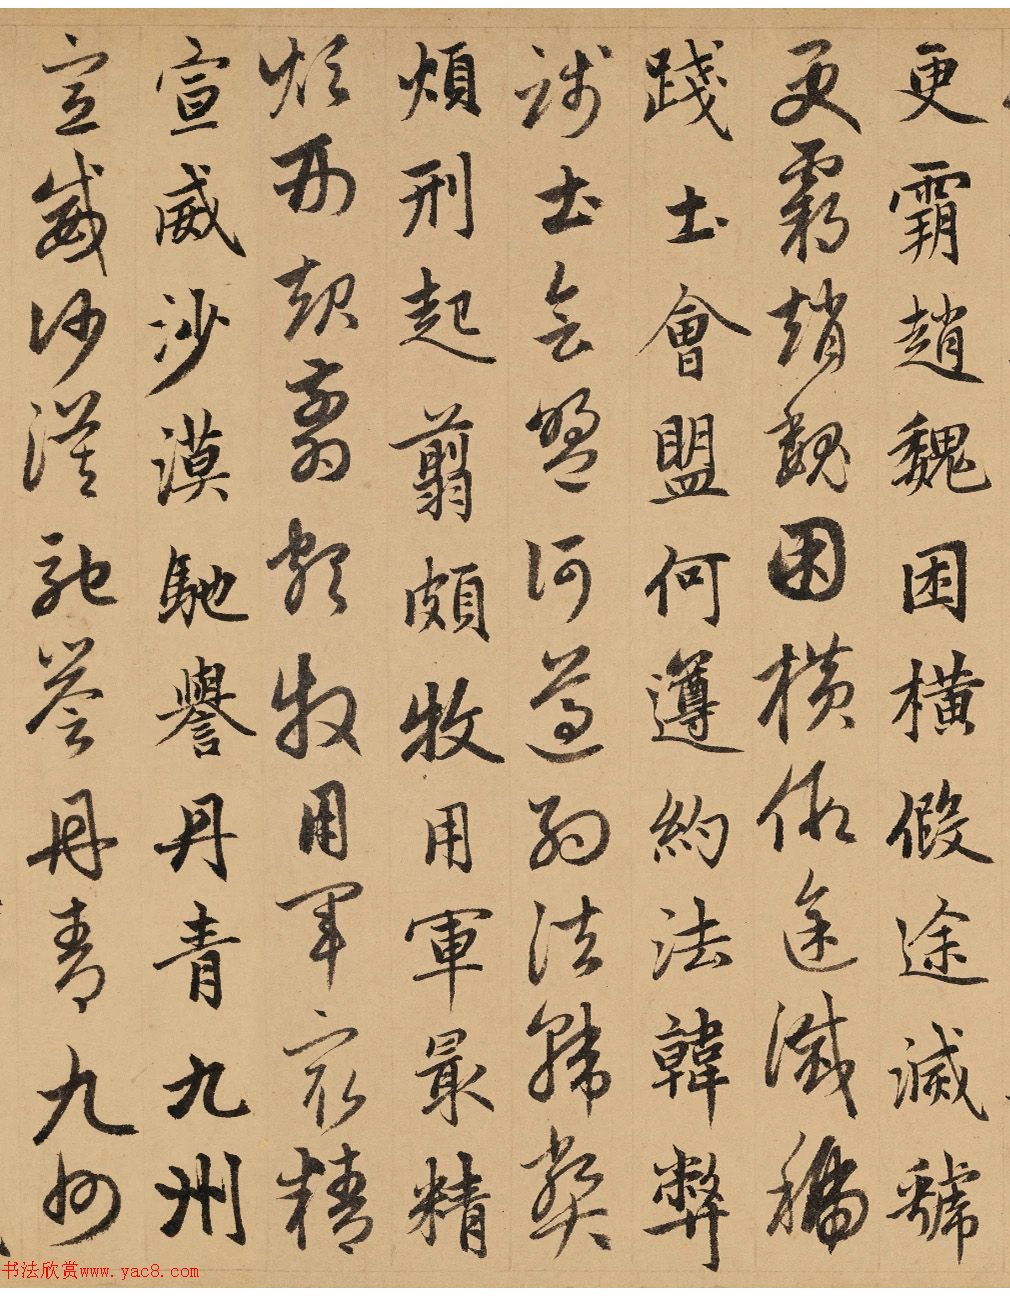 更霸趙魏困橫假途滅虢
更霸趙魏困橫假途滅虢
踐土會盟何遵約法韓弊
踐土會盟何遵約法韓弊
煩刑起翦頗牧用軍最精
煩刑起翦頗牧用軍最精
宣威沙漠馳譽丹青九州
宣威沙漠馳譽丹青九州
书法欣赏www.yac8.com